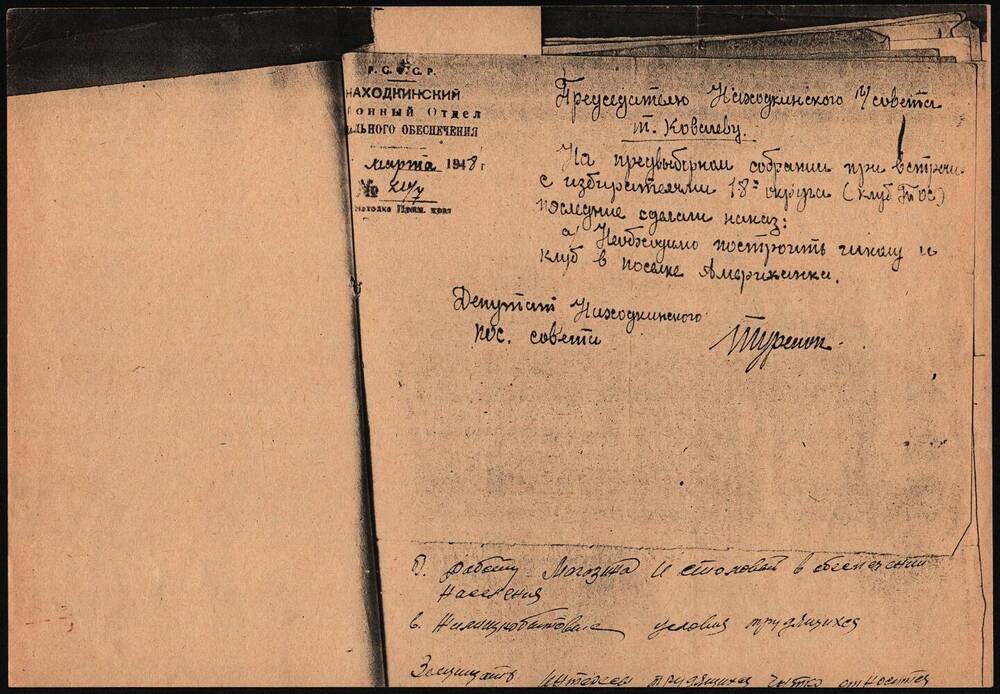 Р.С.Ф.С.Р.
НАХОДКИНСКИЙ
онный Отдел
льного ОБЕСПЕЧЕНИЯ
марта 1948 г
№
Находка Прим. края
Председателю Находкинского П/совета
т. Ковалеву.
На предвыборном собрании при встречи
с избирателями 18го округа (клуб ТОС)
последние сделали наказ:
а/ Необходимо построить школу и
клуб в поселке Американка.
Депутат Находкинского
пос. совета
б. работу магазина и столовой в обеспечении
населения
в. Жилищнобытовые условия трудящихся
Защищать интересы трудящихся чутко относится